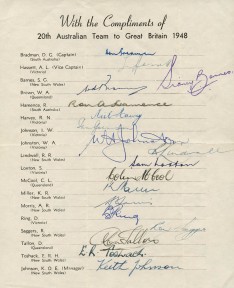 With the Compliments of
20th Australian Team to Great Britain 1948
Bradman, D. G. (Captain)
(South Australia)
Hassett, A. L. (Vice Captain)
(Victoria)
Barnes, S. G.
(New South Wales)
Sidney Barnes
Brown, W. A.
(Queensland)
Hamence, R.
(South Australia)
Ron A Hamence
Harvey, R. N.
(Victoria)
Neil Harvey
Johnson, I. W.
(Victoria)
Johnston, W. A.
(Victoria)
W A Johnston
Lindwall, R. R.
(New South Wales)
Loxton, S.
(Victoria)
Sam Loxton
McCool, C. L.
(Queensland)
Colin McCool
Miller, K. R.
(New South Wales)
Morris, A. R.
(New South Wales)
Ring, D.
(Victoria)
D Ring
Saggers, R.
(New South Wales)
Tallon, D.
(Queensland)
Don Tallon
Toshack, E. R. H.
(New South Wales)
E R Toshack
Johnson, K. O. E. (Manager)
(New South Wales)
Keith Johnson